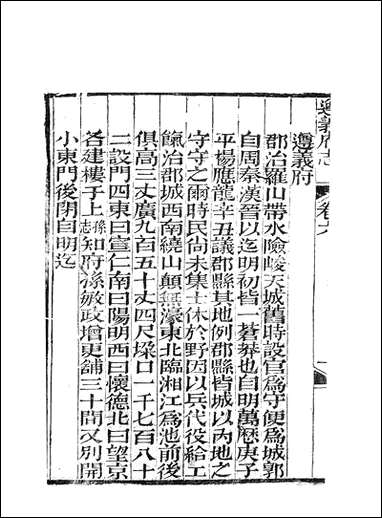 遵義府志 卷六
遵義府
郡治羅山帶水險峻天城舊時設官爲守便爲城郭
自周秦漢晉以迄明初皆一蒼莽也自明萬厯庚子
平楊應龍辛丑議郡縣其地例郡縣皆城以丙地之
守守之爾時民尚未集士休於野因以兵代役給工
餼治郡城西南繞山顛無濠東北臨湘江爲池前後
俱高三丈廣九百五十丈四尺垜口一千七百八十
二設門四東曰宣仁南曰陽明西曰懷德北曰望京
各建樓于上孫志知府孫敏政增更舖三十間又別開
小東門後閉自明迄